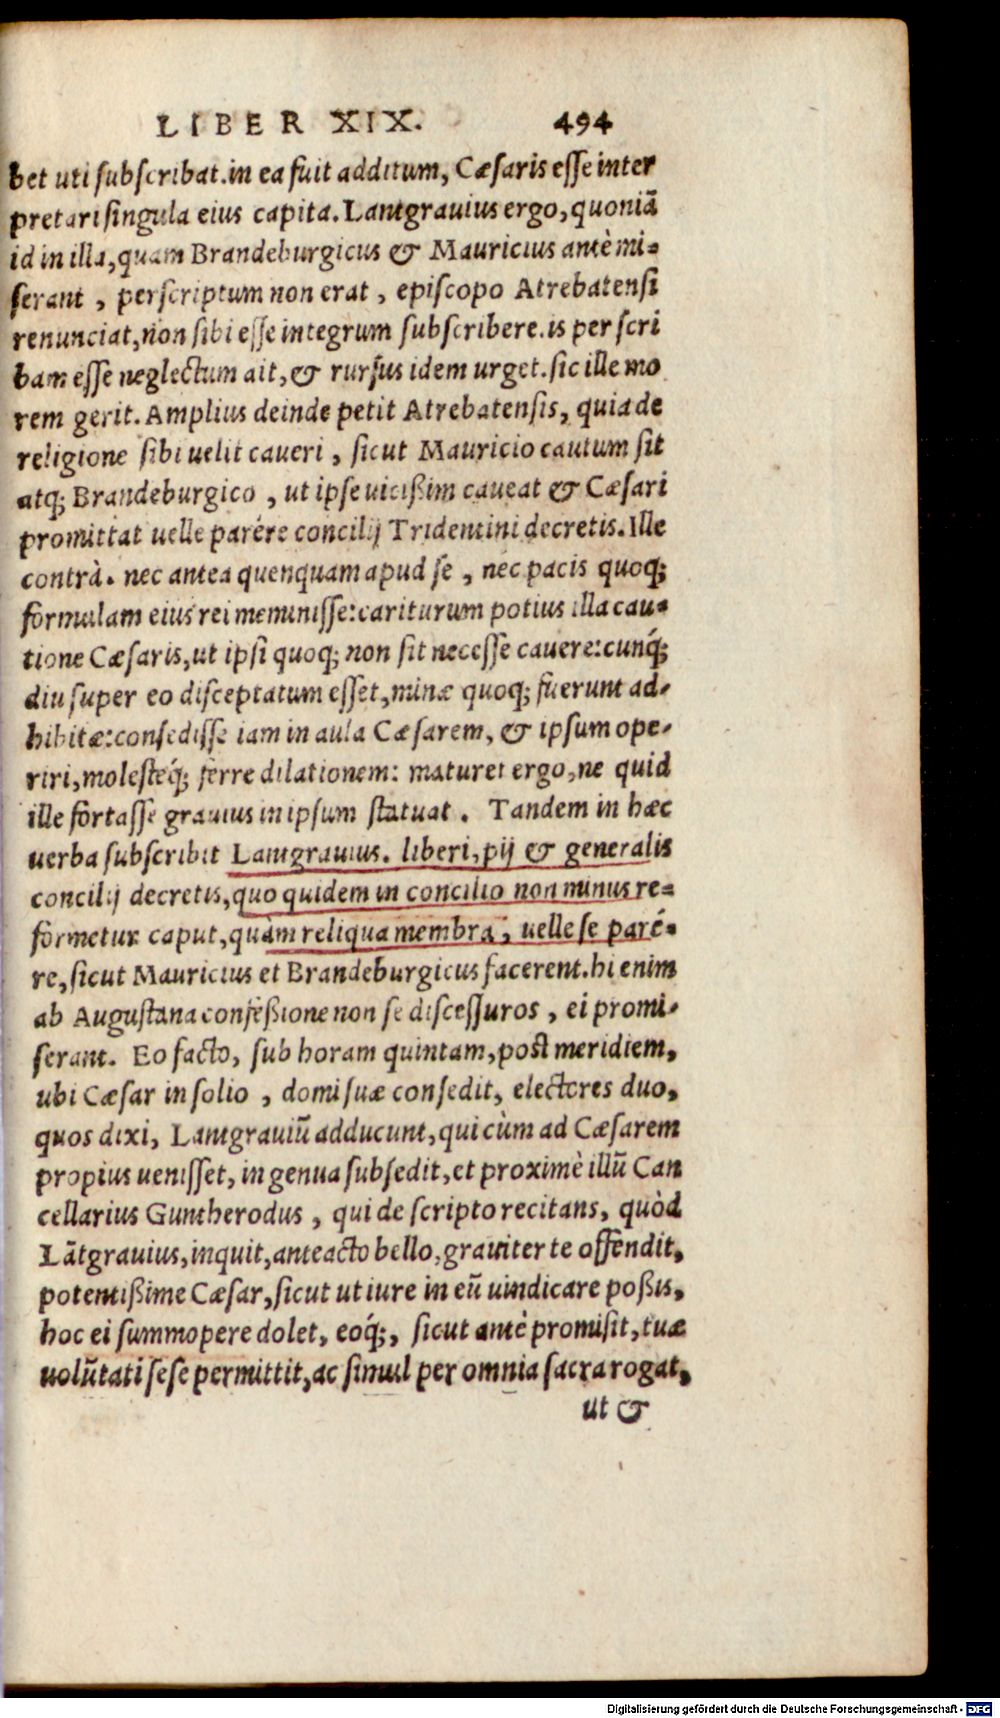 LIBER XIX. 494
bet uti subscribat. in ea fuit additum, Cæsaris esse inter
pretari singula eius capita. Lantgrauius ergo, quoniã
id in illa, quam Brandeburgicus & Mauricius antè mi=
serant, perscriptum non erat, episcopo Atrebatensi
renunciat, non sibi esse integrum subscribere. is per scri
bam esse neglectum ait, & rursus idem urget. sic ille mo
rem gerit. Amplius deinde petit Atrebatensis, quia de
religione sibi uelit caueri, sicut Mauricio cautum sit
atq; Brandeburgico, ut ipse uicißim caueat & Cæsari
promittat uelle parére concilij Tridentini decretis. Ille
contrà. nec antea quenquam apud se, nec pacis quoq;
formulam eius rei meminisse: cariturum potius illa cau=
tione Cæsaris, ut ipsi quoq; non sit necesse cauere: cunq́;
diu super eo disceptatum esset, minæ quoq; fuerunt ad=
hibitæ: consedisse iam in aula Cæsarem, & ipsum ope=
riri, molesteq́; ferre dilationem: maturet ergo, ne quid
ille fortasse grauius in ipsum statuat. Tandem in hæc
uerba subscribit Lantgrauius. liberi, pij & generalis
concilij decretis, quo quidem in concilio non minus re=
formetur caput, quàm reliqua membra, uelle se paré=
re, sicut Mauricius et Brandeburgicus facerent. hi enim
ab Augustana confeßione non se discessuros, ei promi=
serant. Eo facto, sub horam quintam, post meridiem,
ubi Cæsar in solio, domi suæ consedit, electores duo,
quos dixi, Lantgrauiũ adducunt, qui cùm ad Cæsarem
propius uenisset, in genua subsedit, et proximè illũ Can
cellarius Guntherodus, qui de scripto recitans, quòd
Lãtgrauius, inquit, anteacto bello, grauiter te offendit,
potentißime Cæsar, sicut ut iure in eũ uindicare poßis,
hoc ei summopere dolet, eoq́;, sicut antè promisit, tuæ
uolũtati sese permittit, ac simul per omnia sacra rogat,
ut &
Digitalisierung gefördert durch die Deutsche Forschungsgemeinschaft - DFG